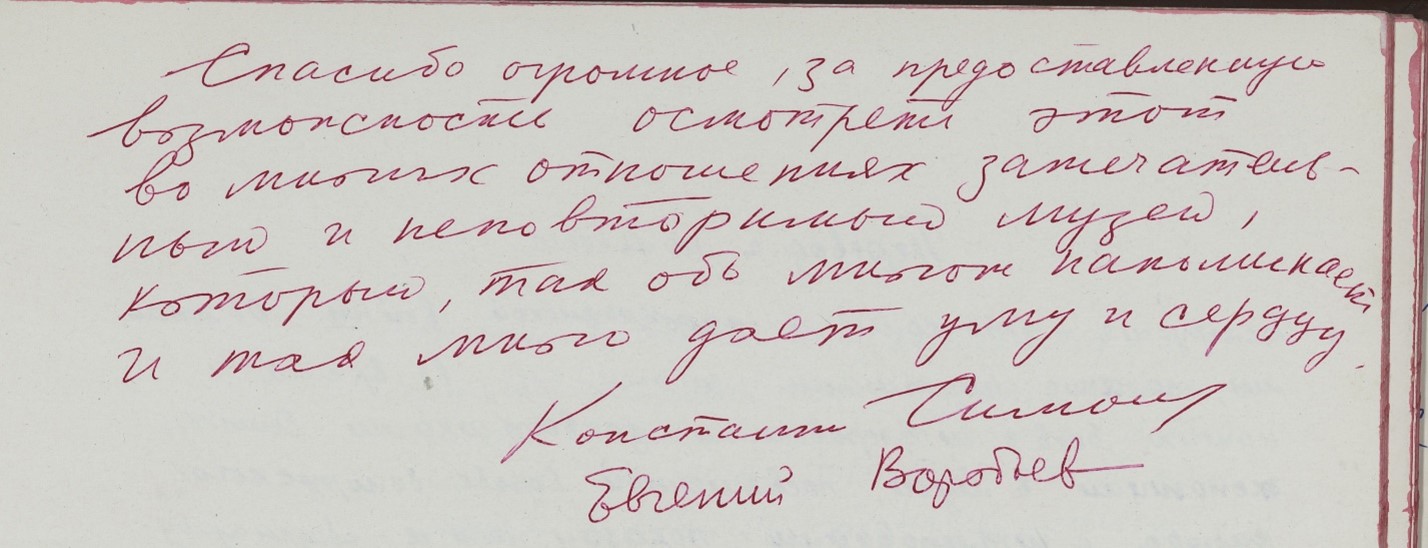 Спасибо огромное, за предоставленную
возможность осмотреть этот
во многих отношениях замечатель-
ный и неповторимый музей,
который, так объ многом напоминает
и так много дает уму и сердцу.
Константин Симонов
Евгений Воробьев